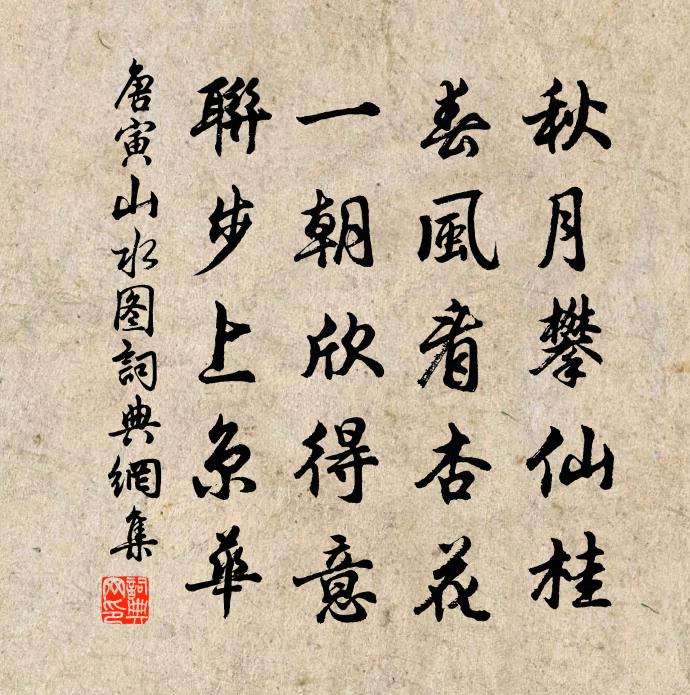 秋月攀仙桂
春風看杏花
一朝欣得意
聯步上京華
唐寅山水图詞典網集
詞典網印